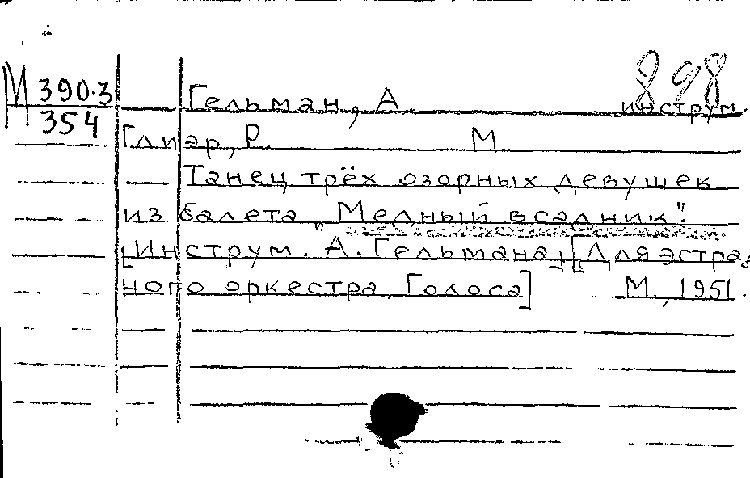 М 390.3
354
898
Гельман, А. инструм.
Глиэр, Р. М
Танец трёх озорных девушек
из балета „Медный всадник".
[Инструм. А. Гельмана]. [Для эстрад
ного оркестра. Голоса] М., 1951.